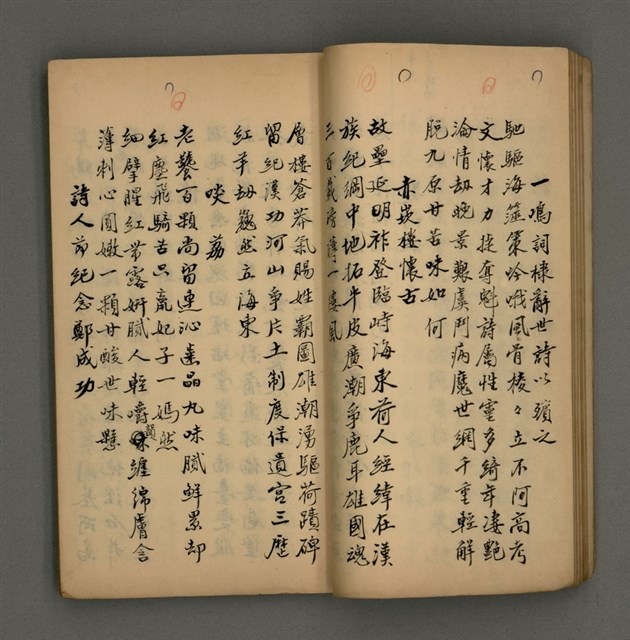 一鳴詞棣辭世詩以頌之
馳驅海筮策吟哦風骨棱々立不阿高才
文懷才力挫奪魁詩屬性靈多綺年淒艷
淪情劫晚景艱虞鬥病魔世網千重輕解
脫九原甘苦味如何
赤崁樓懷古
故壘延明祚登臨峙海東荷人經緯在漢
族紀綱中地拓牛皮廣潮爭鹿耳雄國魂
三百載一
層樓蒼莽氣賜姓霸圖雄潮湧驅荷蹟碑
留紀漢功河山爭片土制度保遺宮三歷
紅羊劫巍然立海東
啖荔
老饕百顆尚留連沁齒晶丸味膩鮮累却
紅塵飛騎苦只贏妃子一嫣然
細擘腥紅帶露妍膩人輕嚼韻纏綿膚含
薄刺心圓嫩一顆甘酸世味懸
詩人節紀念鄭成功